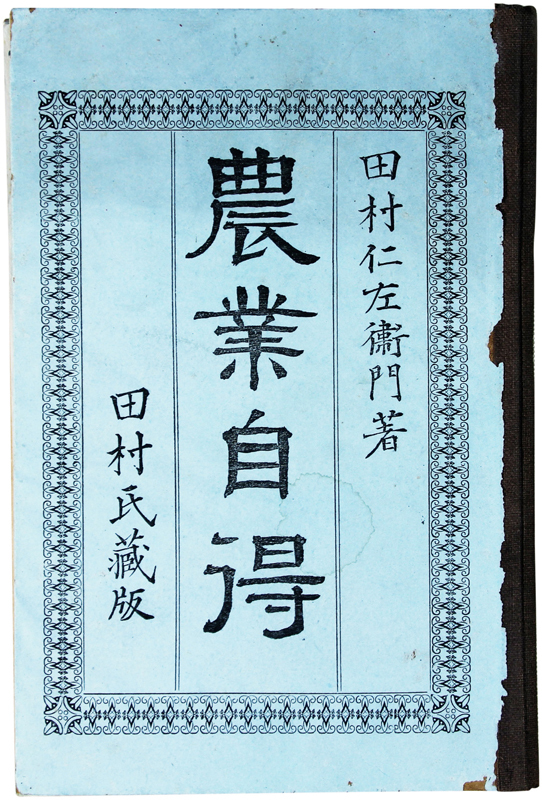 田村仁左衛門著
農業自得
田村氏藏版